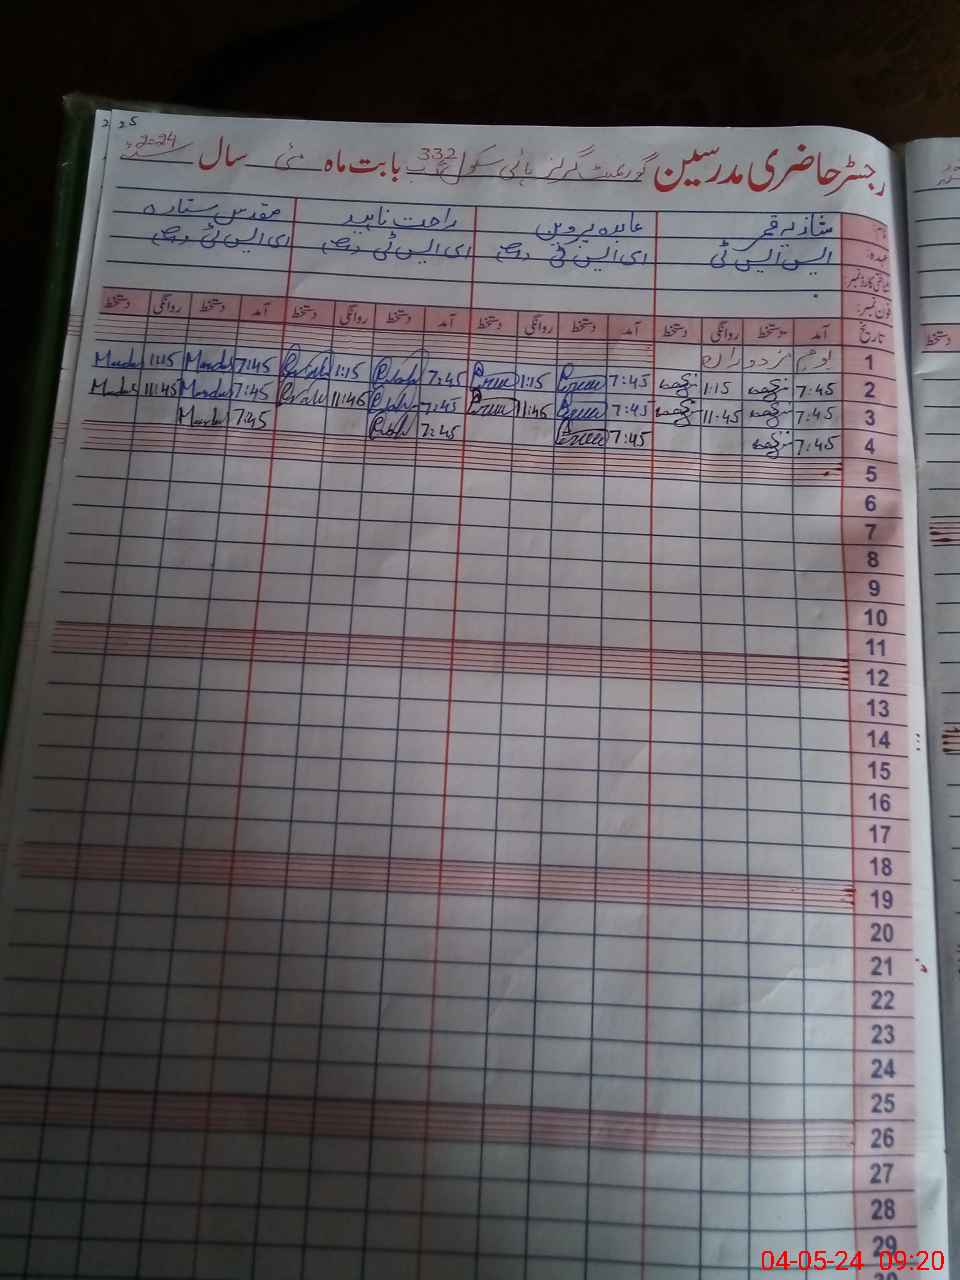 25
رجسٹر حاضری مدرسین گورنمنٹ گرلز ہائی سکول 332 ج ب بابت ماہ مئی سال 2024
نام: شازیہ قمر عابدہ پروین راحت ناہید مقدس ستارہ
عہدہ: ایس ایس ٹی ای ایس ٹی ای ایس ٹی ای ایس ٹی
شناختی کارڈ نمبر:
فون نمبر:
تاریخ آمد دستخط روانگی دستخط آمد دستخط روانگی دستخط آمد دستخط روانگی دستخط آمد دستخط روانگی دستخط
1 یوم مزدوراں
2 7:45 1:15 7:45 1:15 7:45 1:15 7:45 1:15
3 7:45 11:45 7:45 11:45 7:45 11:45 7:45 11:45
4 7:45 7:45 7:45 7:45
5
6
7
8
9
10
11
12
13
14
15
16
17
18
19
20
21
22
23
24
25
26
27
28
29
04-05-24 09:20